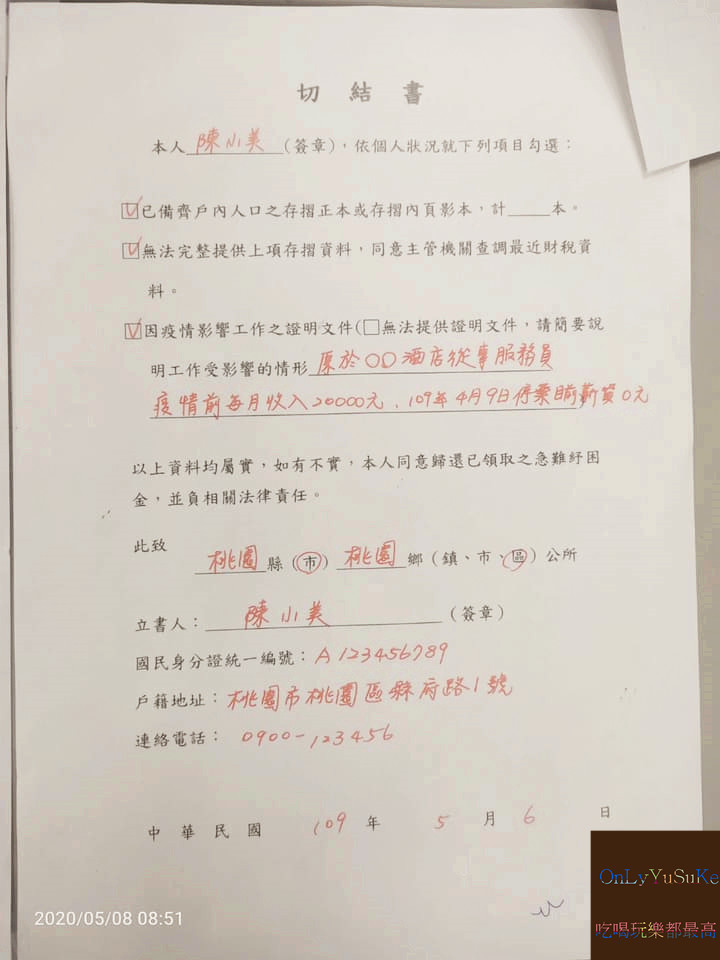 切結書
本人陳小美(簽章),依個人狀況就下列項目勾選:
☑已備齊戶內人口之存摺正本或存摺內頁影本,計____本。
☑無法完整提供上項存摺資料,同意主管機關查調最近財稅資
料。
☑因疫情影響工作之證明文件(☐無法提供證明文件,請簡要說
明工作受影響的情形 原於OO酒店從事服務員
疫情前每月收入20000元、109年4月9日停業目前薪資0元
以上資料均屬實,如有不實,本人同意歸還已領取之急難紓困
金,並負相關法律責任。
此致
桃園縣(市)桃園鄉(鎮、市、區)公所
立書人:陳小美(簽章)
國民身分證統一編號:A123456789
戶籍地址:桃園市桃園區縣府路1號
連絡電話:0900-123456
中華民國 109 年 5 月 6 日
OnLyYuSuKe
吃喝玩樂都最高
2020/05/08 08:51